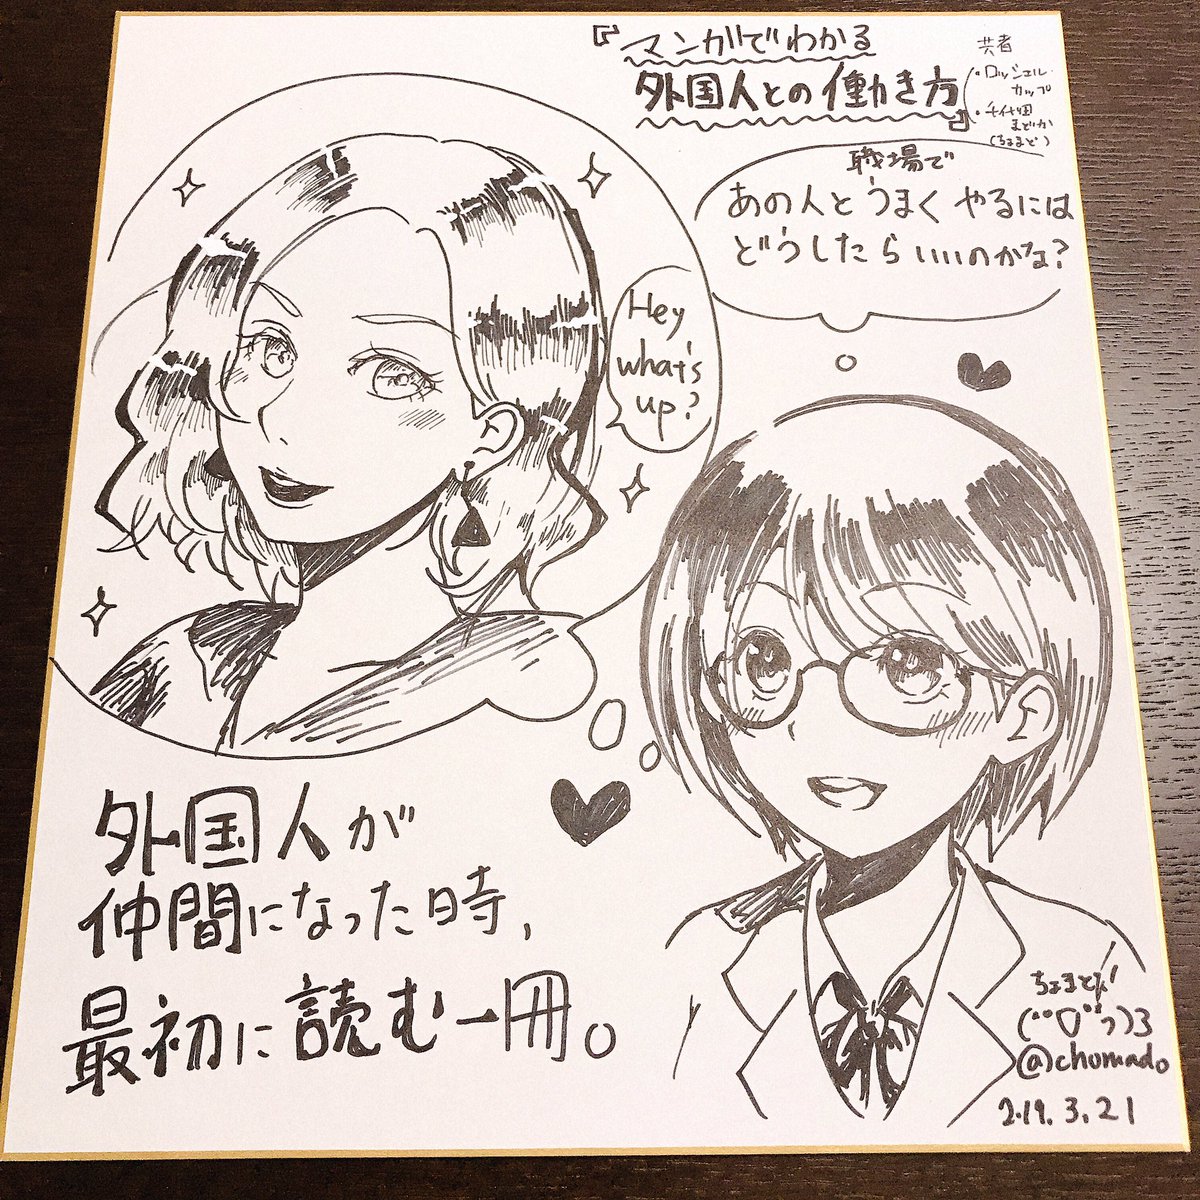 『マンガでわかる
外国人との働き方』
共著
・ロッシェル・
カップ
・千代田
まどか
(ちょまど)
職場で
あの人とうまくやるには
どうしたらいいのかな?
Hey,
what's
up?
外国人が
仲間になった時,
最初に読む一冊。
ちょまど
@chomado
2019.3.21